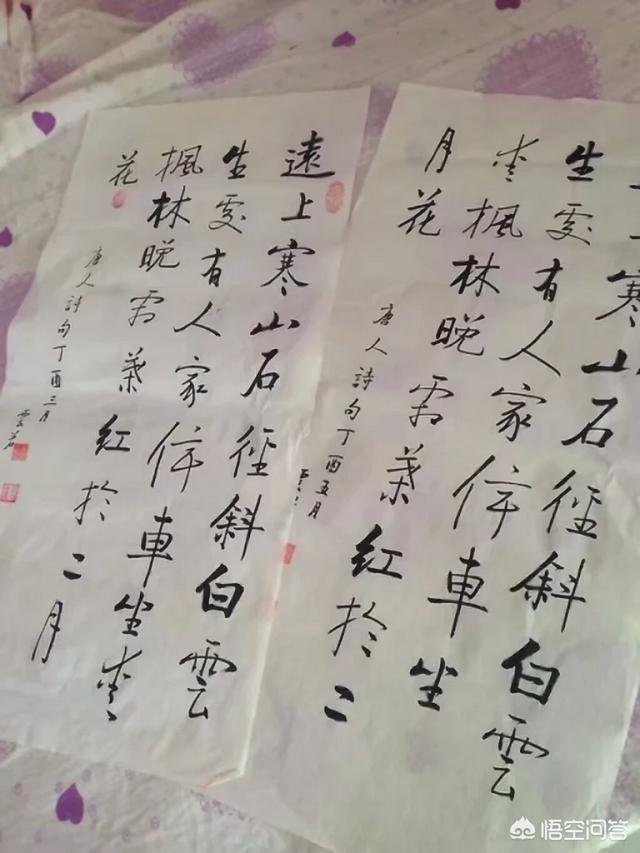 遠上寒山石徑斜白雲
生處有人家停車坐愛
楓林晚霜葉紅於二月
花
唐人詩句丁酉三月
寒山石徑斜白雲
生處有人家停車坐
愛楓林晚霜葉紅於二
月花
唐人詩句丁酉五月
悟空问答